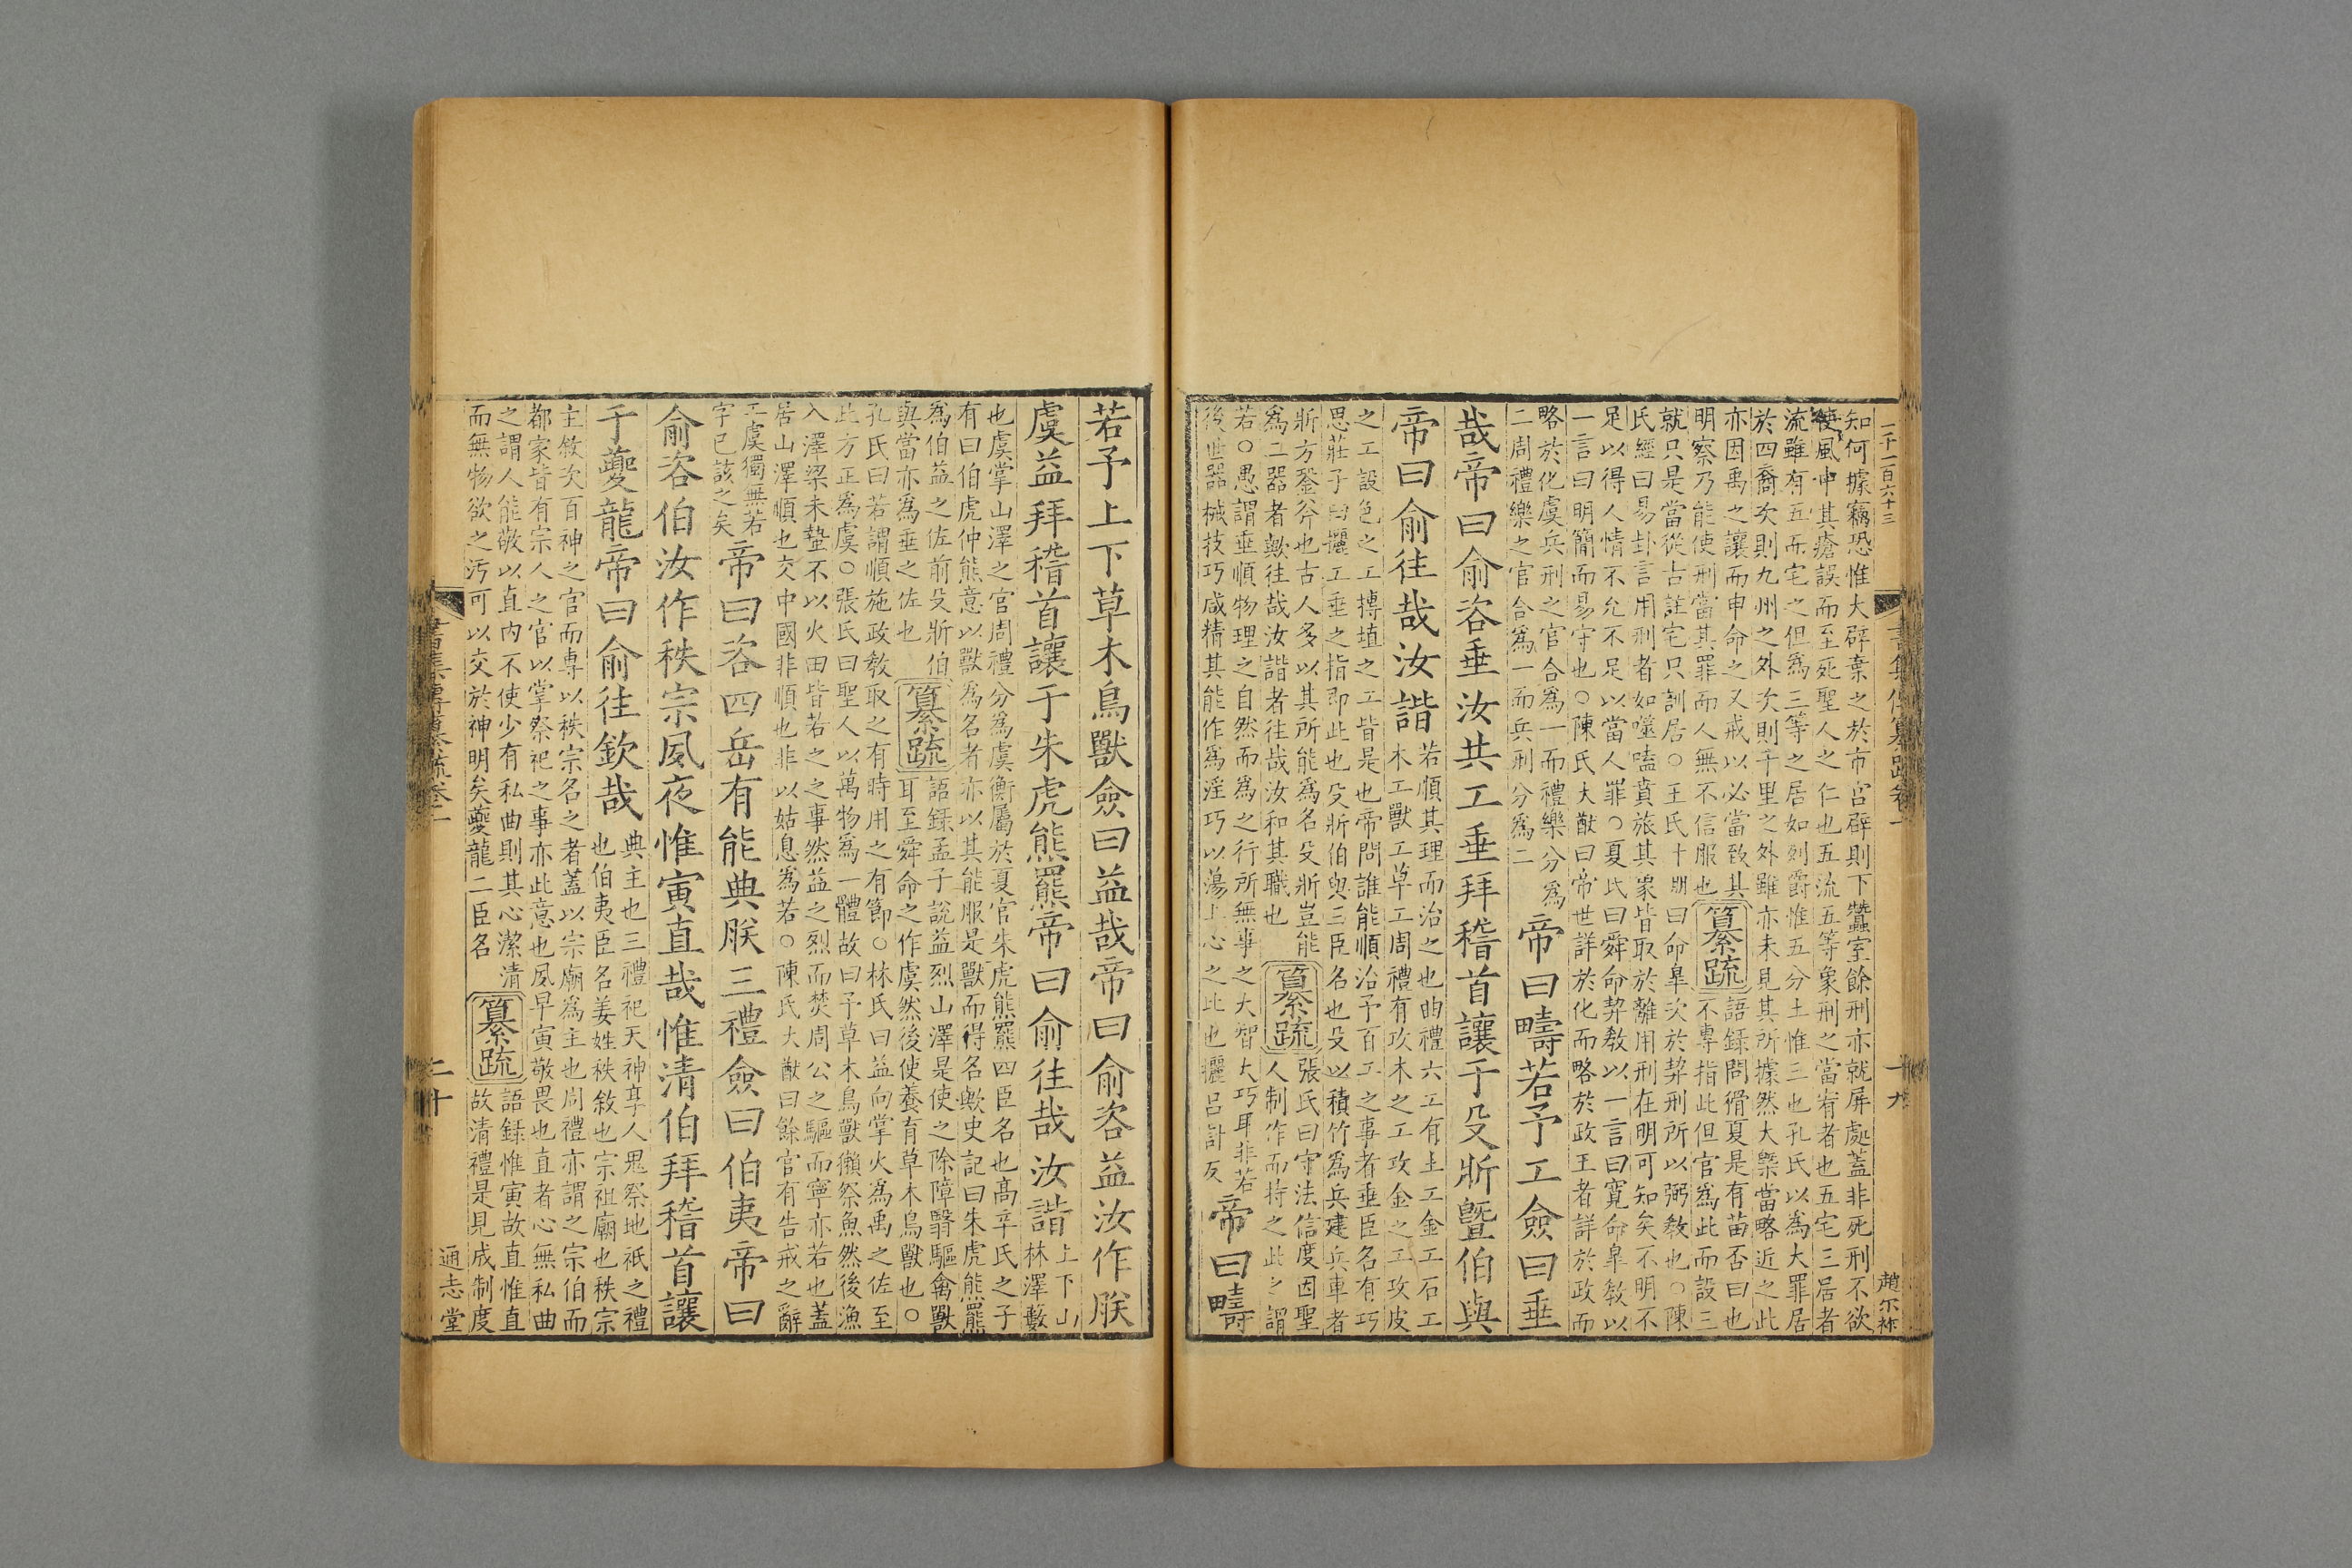 二千一百六十三
趙尔祢
知何據竊恐惟大辟棄之於市宮辟則下蠶室餘刑亦就屏處蓋非死刑不欲
使風中其瘡誤而至死聖人之仁也五流五等象刑之當宥者也五宅三居者
流雖有五而宅之但爲三等之居如列爵惟五分土惟三也孔氏以爲大罪居
於四裔次則九州之外次則千里之外雖亦未見其所據然大槩當略近之此
亦因禹之讓而申命之又戒以必當致其
明察乃能使刑當其罪而人無不信服也
纂疏
語錄問猾夏是有苗否曰也
不專指此但官爲此而設三
就只是當從古註宅只訓居○王氏十朋曰命皐次於契刑所以弼教也○陳
氏經曰易卦言用刑者如噬嗑賁旅其象皆取於離用刑在明可知矣不明不
足以得人情不允不足以當人罪○夏氏曰舜命契敎以一言曰寬命皐敎以
一言曰明簡而易守也○陳氏大猷曰帝世詳於化而略於政王者詳於政而
略於化虞兵刑之官合爲一而禮樂分爲
二周禮樂之官合爲一而兵刑分爲二
帝曰疇若予工僉曰垂
哉帝曰俞咨垂汝共工垂拜稽首讓于殳斨曁伯與
帝曰俞往哉汝諧
若順其理而治之也曲禮六工有土工金工石工
木工獸工草工周禮有攻木之工攻金之工攻皮
之工設色之工摶埴之工皆是也帝問誰能順治予百工之事者垂臣名有巧
思莊子曰攦工垂之指即此也殳斨伯與三臣名也殳以積竹爲兵建兵車者
斨方銎斧也古人多以其所能爲名殳斨豈能
爲二器者歟往哉汝諧者往哉汝和其職也
纂疏
張氏曰守法信度因聖
人制作而持之此之謂
若○愚謂垂順物理之自然而爲之行所無事之大智大巧耳非若
後世器械技巧咸精其能作爲淫巧以蕩上心之比也攦呂計反
帝曰疇
書集傳纂疏卷一
十九
若予上下草木鳥獸僉曰益哉帝曰俞咨益汝作朕
虞益拜稽首讓于朱虎熊羆帝曰俞往哉汝諧
上下山
林澤藪
也虞掌山澤之官周禮分爲虞衡屬於夏官朱虎熊羆四臣名也高辛氏之子
有曰伯虎仲熊意以獸爲名者亦以其能服是獸而得名歟史記曰朱虎熊羆
爲伯益之佐前殳斨伯
與當亦爲垂之佐也
纂疏
語錄孟子說益烈山澤是使之除障翳驅禽獸
耳至舜命之作虞然後使養育草木鳥獸也○
孔氏曰若謂順施政敎取之有時用之有節○林氏曰益向掌火爲禹之佐至
此方正爲虞○張氏曰聖人以萬物爲一體故曰予草木鳥獸獺祭魚然後漁
入澤梁未蟄不以火田皆若之之事然益之烈而焚周公之驅而寧亦若也蓋
居山澤順也交中國非順也非以姑息爲若○陳氏大猷曰餘官有告戒之辭
工虞獨無若
字已該之矣
帝曰咨四岳有能典朕三禮僉曰伯夷帝曰
俞咨伯汝作秩宗夙夜惟寅直哉惟清伯拜稽首讓
于夔龍帝曰俞往欽哉
典主也三禮祀天神享人鬼祭地祇之禮
也伯夷臣名姜姓秩敘也宗祖廟也秩宗
主敘次百神之官而專以秩宗名之者蓋以宗廟爲主也周禮亦謂之宗伯而
都家皆有宗人之官以掌祭祀之事亦此意也夙早寅敬畏也直者心無私曲
之謂人能敬以直內不使少有私曲則其心潔清
而無物欲之汚可以交於神明矣夔龍二臣名
纂疏
語錄惟寅故直惟直
故清禮是見成制度
書集傳纂疏卷一
二十
通志堂